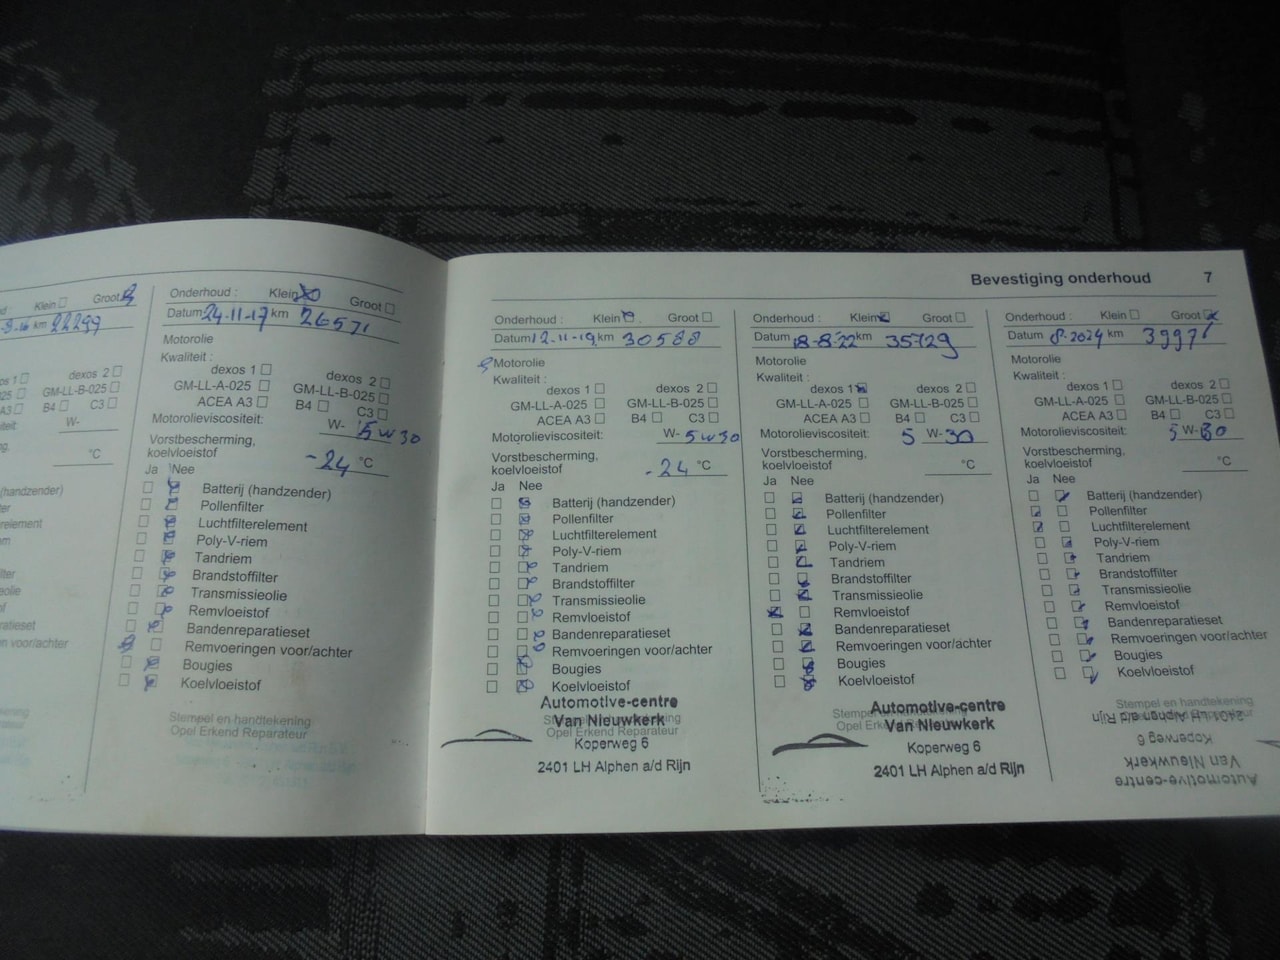 Bevestiging onderhoud 7
Klein Groot
km 22299
dexos 2
B4 C3
W-
°C
Onderhoud : Klein Groot
Datum 24-11-17 km 26571
Motorolie
Kwaliteit :
dexos 1 dexos 2
GM-LL-A-025 GM-LL-B-025
ACEA A3 B4 C3
Motorolieviscositeit: W- 5W30
Vorstbescherming,
koelvloeistof -24 °C
Ja Nee
Batterij (handzender)
Pollenfilter
Luchtfilterelement
Poly-V-riem
Tandriem
Brandstoffilter
Transmissieolie
Remvloeistof
Bandenreparatieset
Remvoeringen voor/achter
Bougies
Koelvloeistof
Stempel en handtekening
Opel Erkend Reparateur
Onderhoud : Klein Groot
Datum 12-11-19 km 30588
Motorolie
Kwaliteit :
dexos 1 dexos 2
GM-LL-A-025 GM-LL-B-025
ACEA A3 B4 C3
Motorolieviscositeit: W- 5W30
Vorstbescherming,
koelvloeistof -24 °C
Ja Nee
Batterij (handzender)
Pollenfilter
Luchtfilterelement
Poly-V-riem
Tandriem
Brandstoffilter
Transmissieolie
Remvloeistof
Bandenreparatieset
Remvoeringen voor/achter
Bougies
Koelvloeistof
Automotive-centre
Stempel en handtekening
Van Nieuwkerk
Opel Erkend Reparateur
Koperweg 6
2401 LH Alphen a/d Rijn
Onderhoud : Klein Groot
Datum 18-8-22 km 35729
Motorolie
Kwaliteit :
dexos 1 dexos 2
GM-LL-A-025 GM-LL-B-025
ACEA A3 B4 C3
Motorolieviscositeit: 5 W-30
Vorstbescherming,
koelvloeistof °C
Ja Nee
Batterij (handzender)
Pollenfilter
Luchtfilterelement
Poly-V-riem
Tandriem
Brandstoffilter
Transmissieolie
Remvloeistof
Bandenreparatieset
Remvoeringen voor/achter
Bougies
Koelvloeistof
Automotive-centre
Stempel en handtekening
Van Nieuwkerk
Opel Erkend Reparateur
Koperweg 6
2401 LH Alphen a/d Rijn
Onderhoud : Klein Groot
Datum 8-2024 km 39971
Motorolie
Kwaliteit :
dexos 1 dexos 2
GM-LL-A-025 GM-LL-B-025
ACEA A3 B4 C3
Motorolieviscositeit: 5 W-30
Vorstbescherming,
koelvloeistof °C
Ja Nee
Batterij (handzender)
Pollenfilter
Luchtfilterelement
Poly-V-riem
Tandriem
Brandstoffilter
Transmissieolie
Remvloeistof
Bandenreparatieset
Remvoeringen voor/achter
Bougies
Koelvloeistof
Stempel en handtekening
2401 LH Alphen a/d Rijn
Koperweg 6
Van Nieuwkerk
Automotive-centre